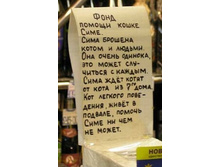 Фонд
помощи кошке
Симе.
Сима брошена
котом и людьми.
Она очень одинока,
это может слу-
читься с каждым.
Сима ждёт котят
от кота из 7го дома.
Кот легкого пове-
дения, живёт в
подвале, помочь
Симе ни чем
не может.